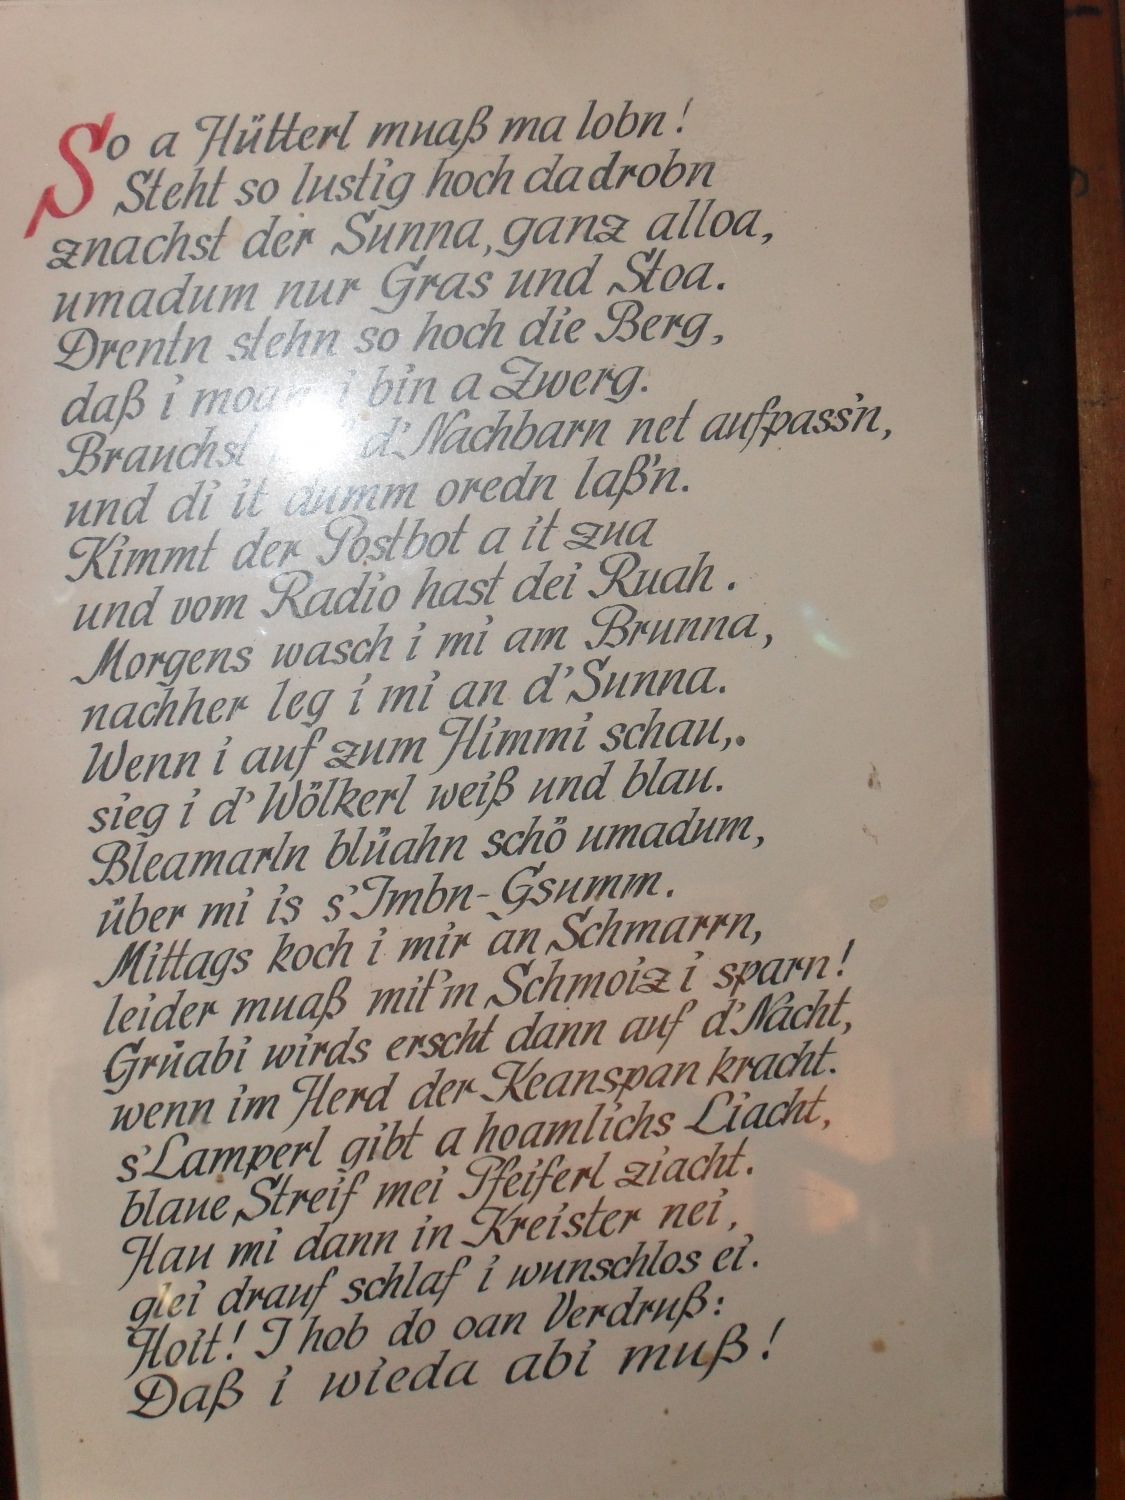 So a Hütterl muaß ma lobn!
Steht so lustig hoch da drobn
znachst der Sunna, ganz alloa,
umadum nur Gras und Stoa.
Drentn stehn so hoch die Berg,
daß i moan i bin a Zwerg.
Brauchst d'Nachbarn net aufpass'n,
und di it dumm oredn laß'n.
Kimmt der Postbot a it zua
und vom Radio hast dei Ruah.
Morgens wasch i mi am Brunna,
nachher leg i mi an d'Sunna.
Wenn i auf zum Himmi schau,.
sieg i d'Wölkerl weiß und blau.
Bleamarln blüahn schö umadum,
über mi is s'Imbn-Gsumm.
Mittags koch i mir an Schmarrn,
leider muaß mit'm Schmoiz i sparn!
Grüabi wirds erscht dann auf d'Nacht,
wenn im Herd der Keanspan kracht.
s'Lamperl gibt a hoamlichs Liacht,
blaue Streif mei Pfeiferl ziacht.
Hau mi dann in Kreister nei,
glei drauf schlaf i wunschlos ei.
Hoit! I hob do oan Verdruß:
Daß i wieda abi muß!